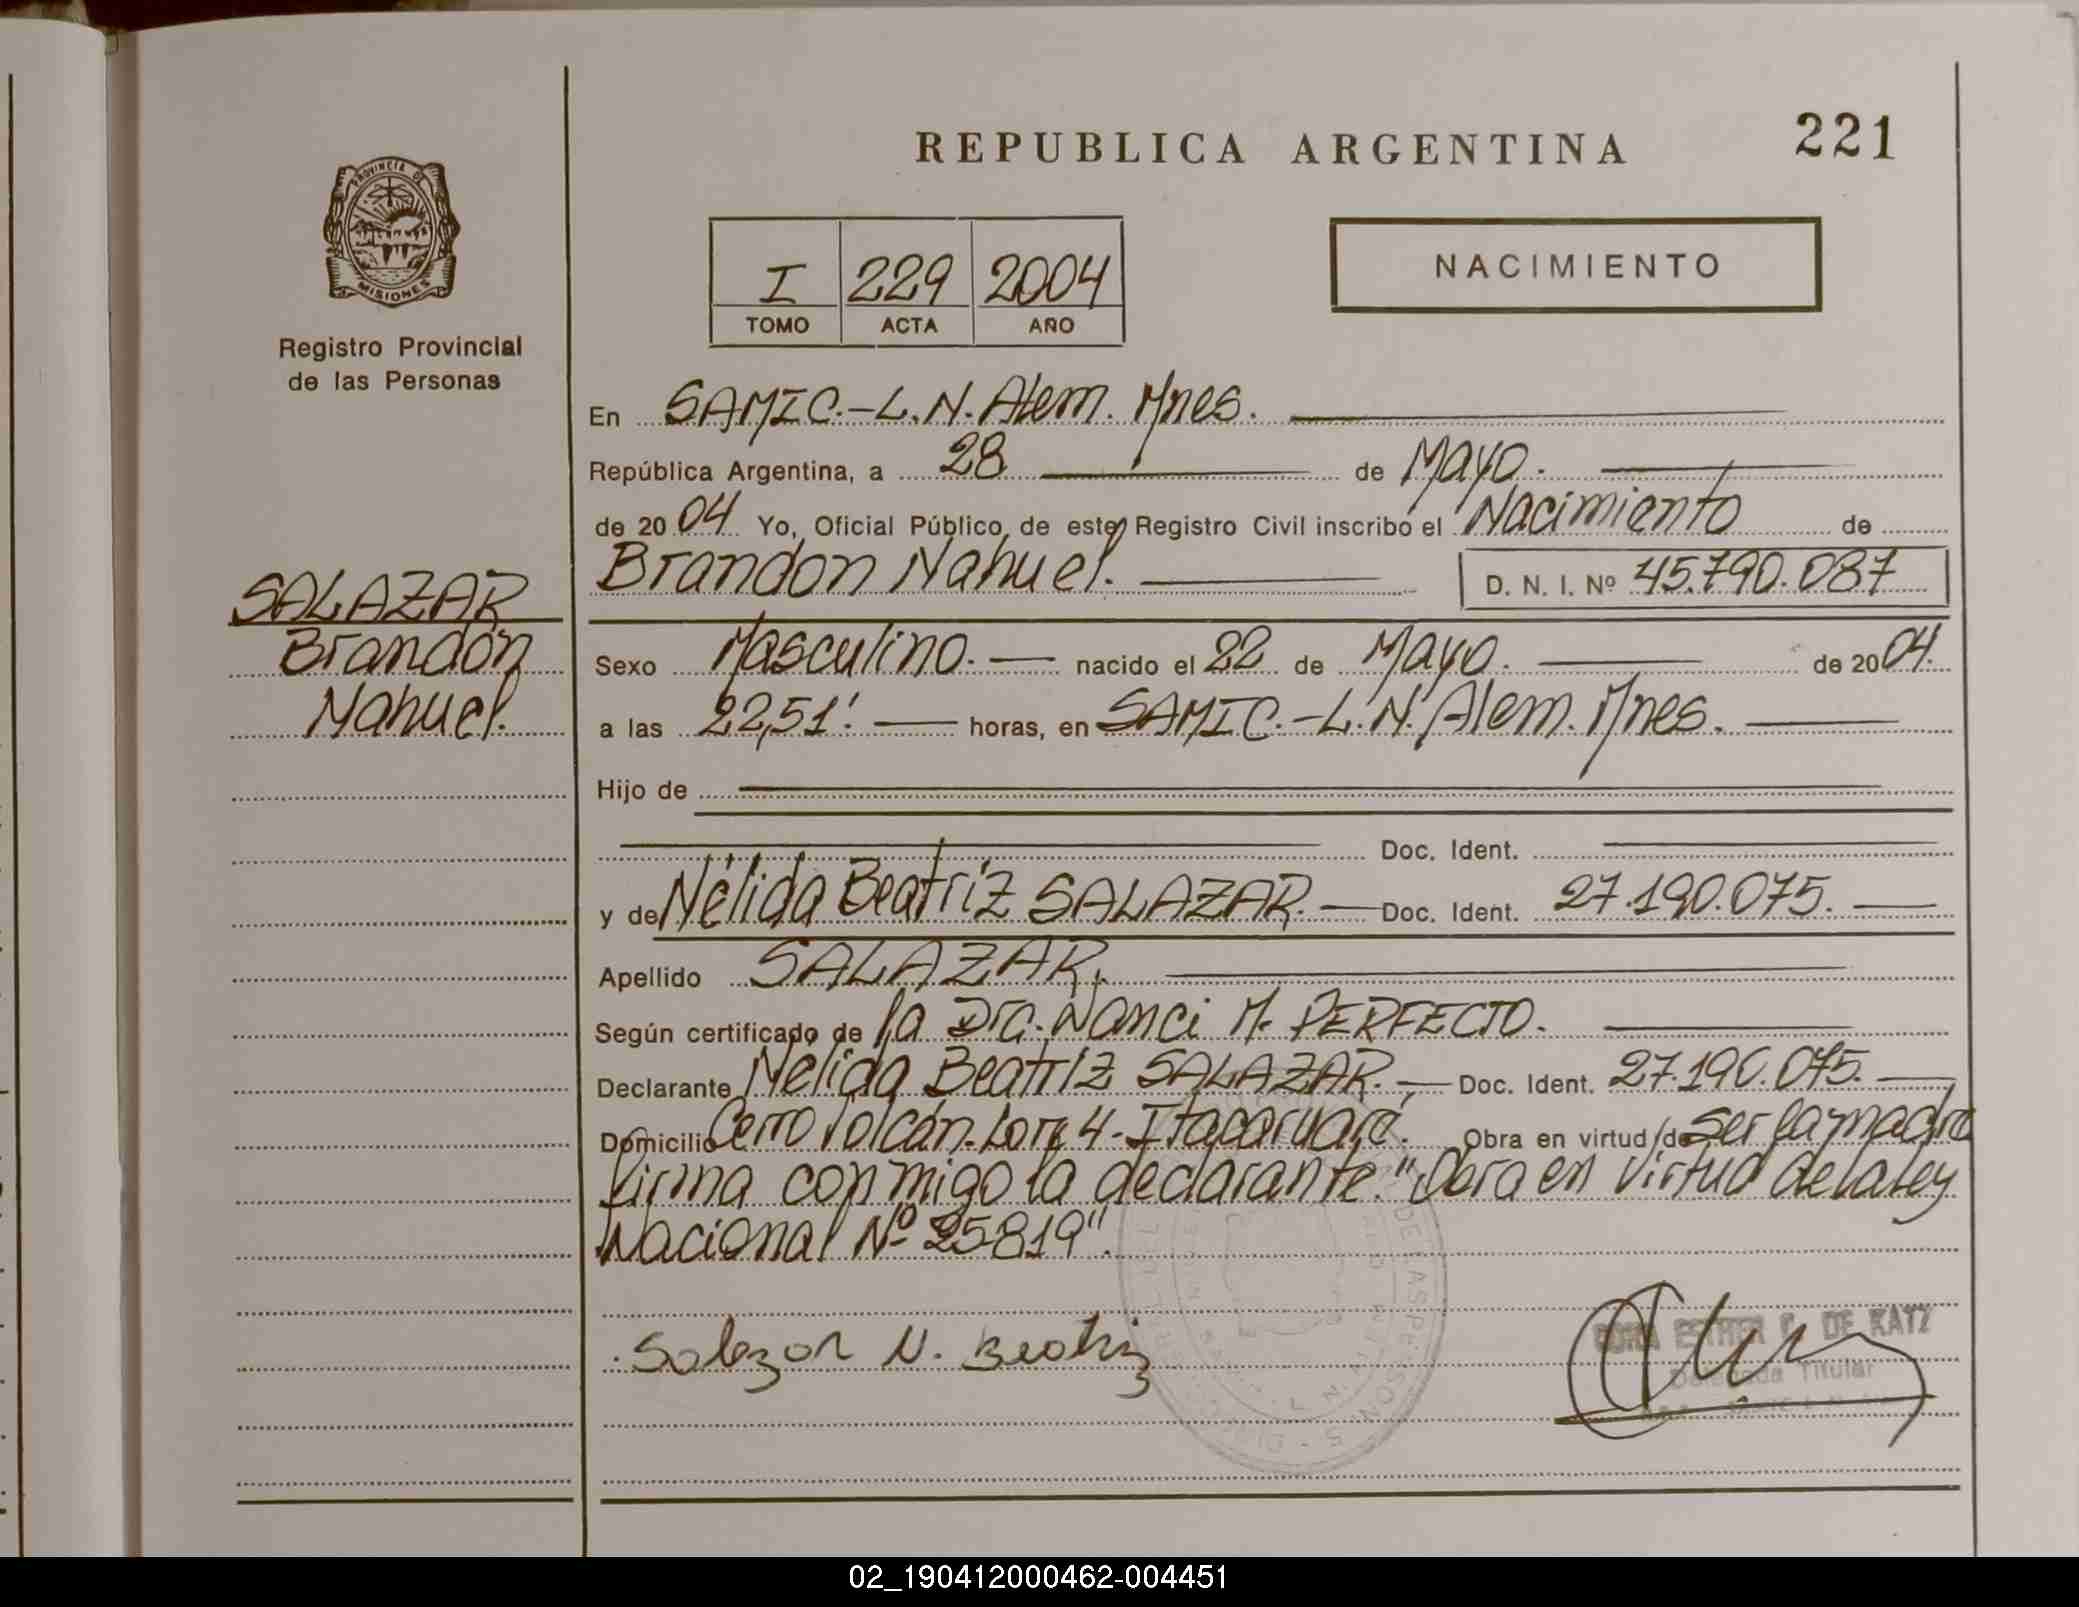 REPUBLICA ARGENTINA 221
PROVINCIA DE
MISIONES
Registro Provincial
de las Personas
I 229 2004
TOMO ACTA AÑO
NACIMIENTO
En SAMIC.-L.N.Alem. Mnes.
República Argentina, a 28 de Mayo.
de 2004 Yo, Oficial Público, de este Registro Civil inscribo el Nacimiento de
Brandon Nahuel. D. N. I. Nº 45.790.087
SALAZAR
Brandon
Nahuel.
Sexo Masculino. nacido el 22 de Mayo. de 2004.
a las 22,51'. horas, en SAMIC.-L.N.Alem. Mnes.
Hijo de
Doc. Ident.
y de Nélida Beatriz SALAZAR. Doc. Ident. 27.190.075.
Apellido SALAZAR.
Según certificado de la Dra. Nanci M. PERFECTO.
Declarante Nélida Beatriz SALAZAR. Doc. Ident. 27.190.075.
Domicilio Cerro Volcán. Lote 4-Itacaruaré. Obra en virtud de Ser la madre
firma conmigo la declarante. "Obra en virtud de la ley
Nacional Nº 25819".
Salazar N. Beatriz
ESTHER DE KATZ
Delegada Titular
DE LAS PERSONAS
02_190412000462-004451